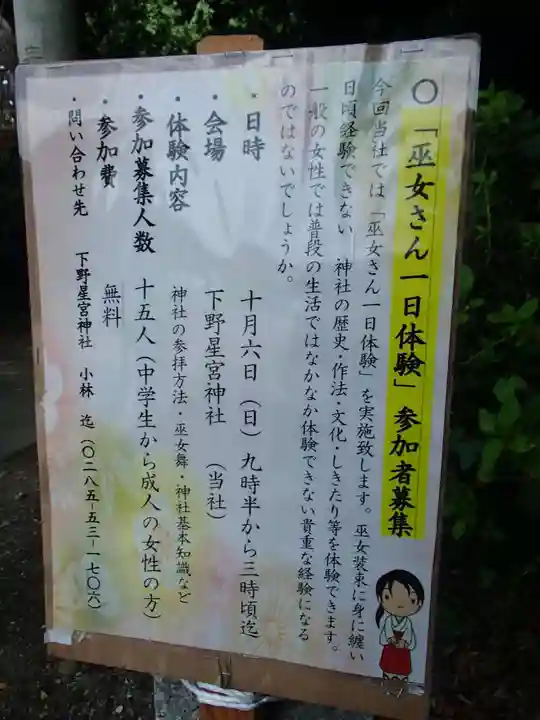 ○「巫女さん一日体験」参加者募集
今回当社では「巫女さん一日体験」を実施致します。巫女装束に身に纏い
日頃経験できない 神社の歴史・作法・文化・しきたり等を体験できます。
一般の女性では普段の生活ではなかなか体験できない貴重な経験になる
のではないでしょうか。
・日時 十月六日(日)九時半から三時頃迄
・会場 下野星宮神社 (当社)
・体験内容 神社の参拝方法・巫女舞・神社基本知識など
・参加募集人数 十五人(中学生から成人の女性の方)
・参加費 無料
・問い合わせ先 下野星宮神社 小林 迄(〇二八五-五三-一七〇六)